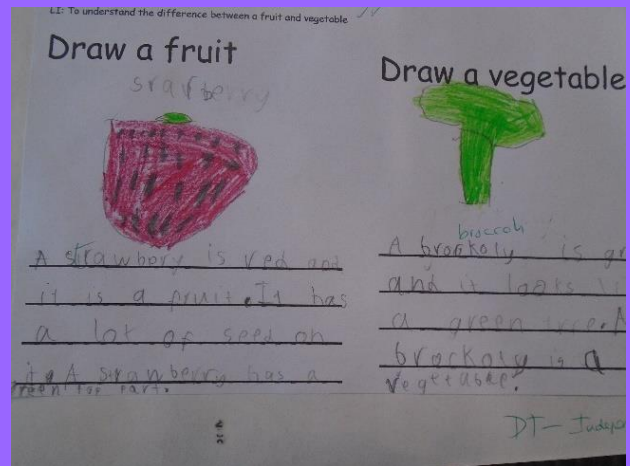 LI: To understand the difference between a fruit and vegetable
Draw a fruit
srarberry
A strawbory is red and
it is a fruit. It has
a lot of seed on
it. A strawberry has a
green top part.
Draw a vegetable
broccoli
A brockoly is gr
and it looks li
a green tree. A
brockoly is a
vegetable.
DT- Indep